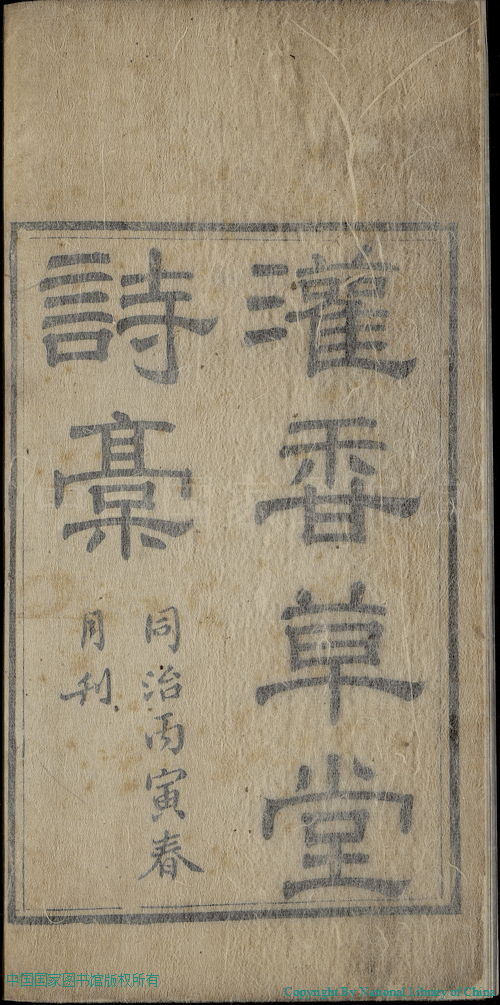 灌香草堂
詩稾
同治丙寅春
月刊
中国国家图书馆版权所有
Copyright By National Library of China